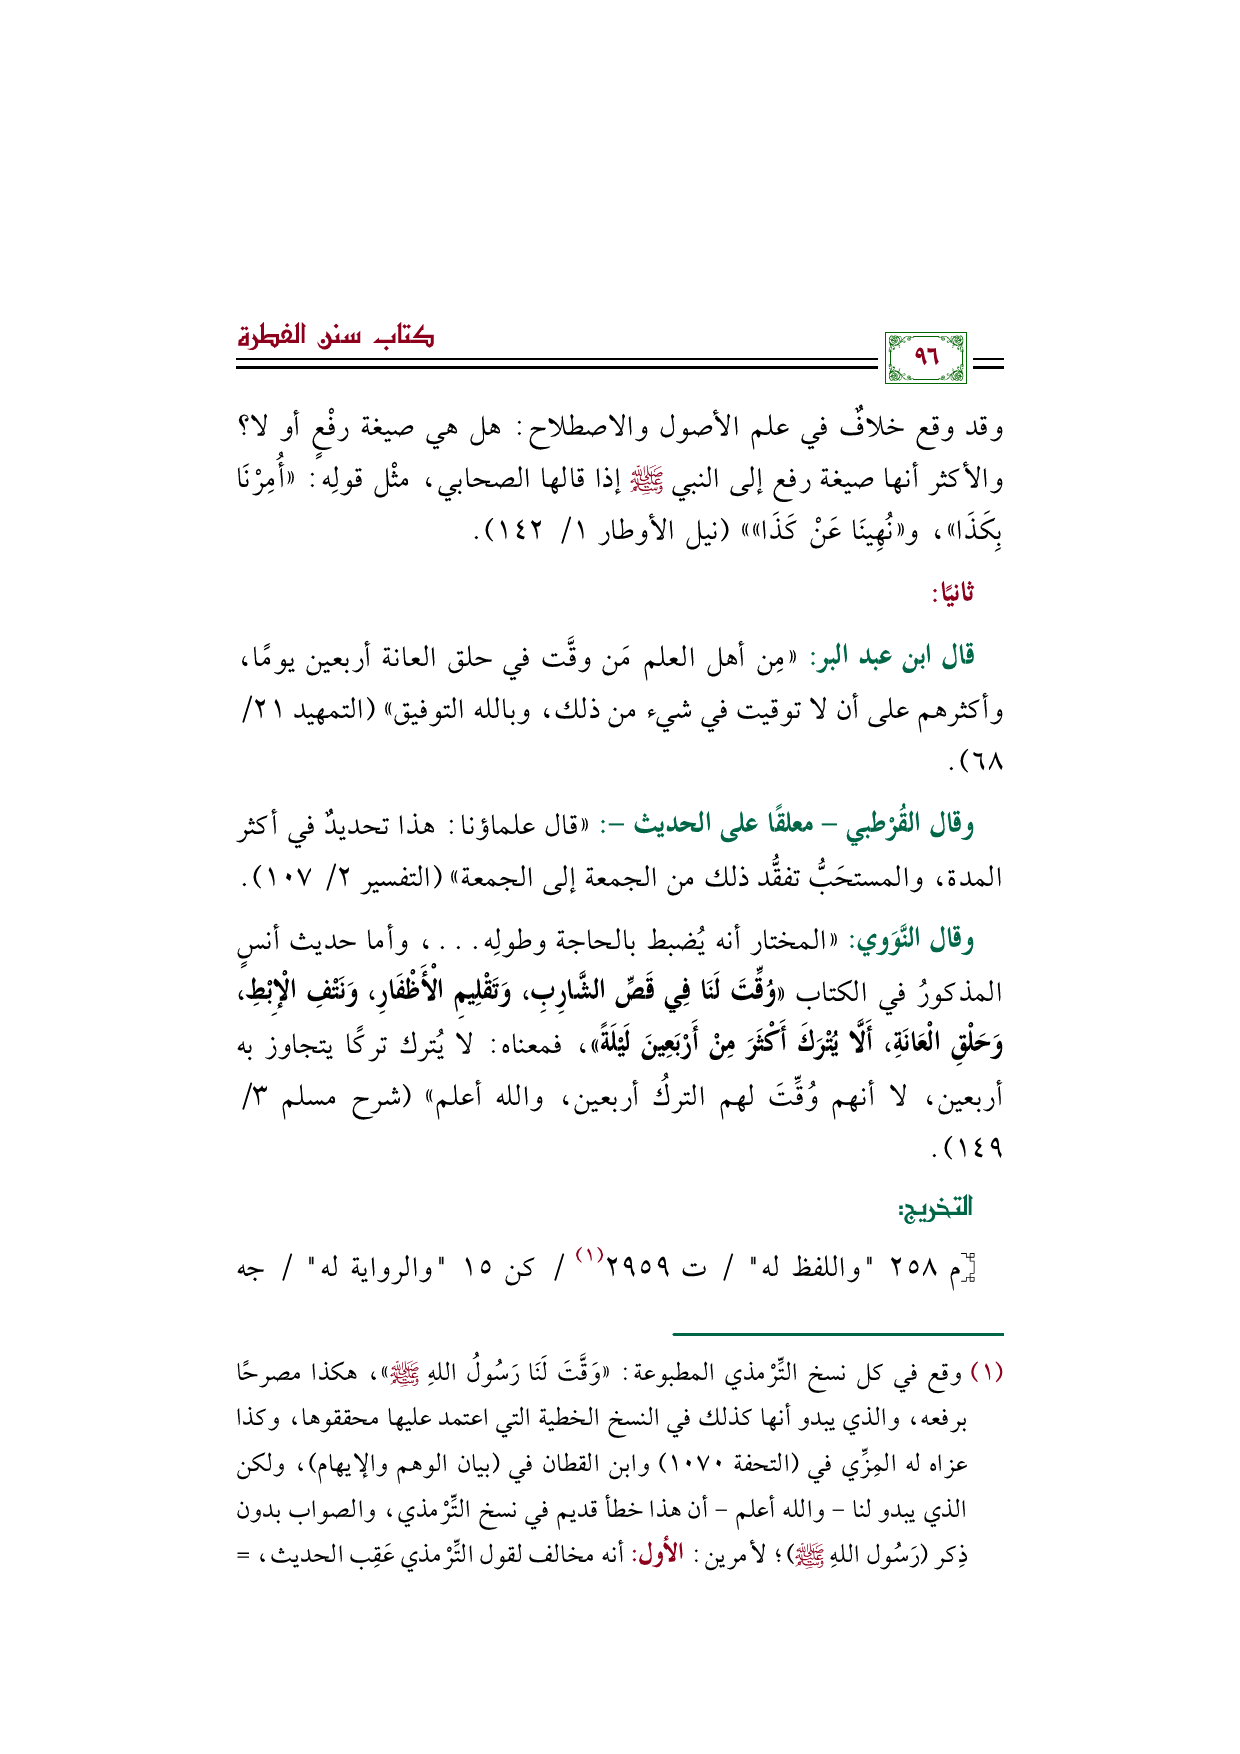 كتاب سنن الفطرة
٩٦
وقد وقع خلافٌ في علم الأصول والاصطلاح: هل هي صيغة رفْعٍ أو لا؟
والأكثر أنها صيغة رفع إلى النبي ﷺ إذا قالها الصحابي، مثْل قولِه: «أُمِرْنَا
بِكَذَا»، و«نُهِينَا عَنْ كَذَا»» (نيل الأوطار ١/ ١٤٢).
ثانيًا:
قال ابن عبد البر: «مِن أهل العلم مَن وقَّت في حلق العانة أربعين يومًا،
وأكثرهم على أن لا توقيت في شيء من ذلك، وبالله التوفيق» (التمهيد ٢١/
٦٨).
وقال القُرْطبي – معلقًا على الحديث –: «قال علماؤنا: هذا تحديدٌ في أكثر
المدة، والمستحَبُّ تفقُّد ذلك من الجمعة إلى الجمعة» (التفسير ٢/ ١٠٧).
وقال النَّوَوي: «المختار أنه يُضبط بالحاجة وطولِه...، وأما حديث أنسٍ
المذكورُ في الكتاب «وُقِّتَ لَنَا فِي قَصِّ الشَّارِبِ، وَتَقْلِيمِ الْأَظْفَارِ، وَنَتْفِ الْإِبْطِ،
وَحَلْقِ الْعَانَةِ، أَلَّا يُتْرَكَ أَكْثَرَ مِنْ أَرْبَعِينَ لَيْلَةً»، فمعناه: لا يُترك تركًا يتجاوز به
أربعين، لا أنهم وُقِّتَ لهم التركُ أربعين، والله أعلم» (شرح مسلم ٣/
١٤٩).
التخريج:
[م ٢٥٨ "واللفظ له" / ت ٢٩٥٩(١) / كن ١٥ "والرواية له" / جه
(١) وقع في كل نسخ التِّرْمذي المطبوعة: «وَقَّتَ لَنَا رَسُولُ اللهِ ﷺ»، هكذا مصرحًا
برفعه، والذي يبدو أنها كذلك في النسخ الخطية التي اعتمد عليها محققوها، وكذا
عزاه له المِزِّي في (التحفة ١٠٧٠) وابن القطان في (بيان الوهم والإيهام)، ولكن
الذي يبدو لنا – والله أعلم – أن هذا خطأ قديم في نسخ التِّرْمذي، والصواب بدون
ذِكر (رَسُول اللهِ ﷺ)؛ لأمرين: الأول: أنه مخالف لقول التِّرْمذي عَقِب الحديث، =